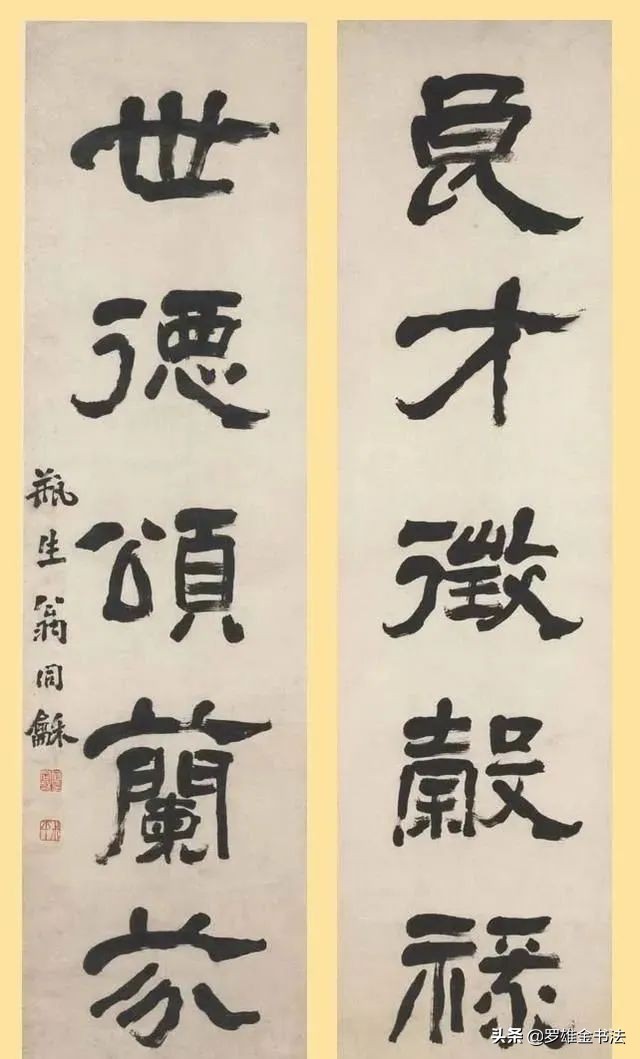 良才徵穀祿
世德頌蘭芬
瓶生翁同龢
头条 @罗雄金书法